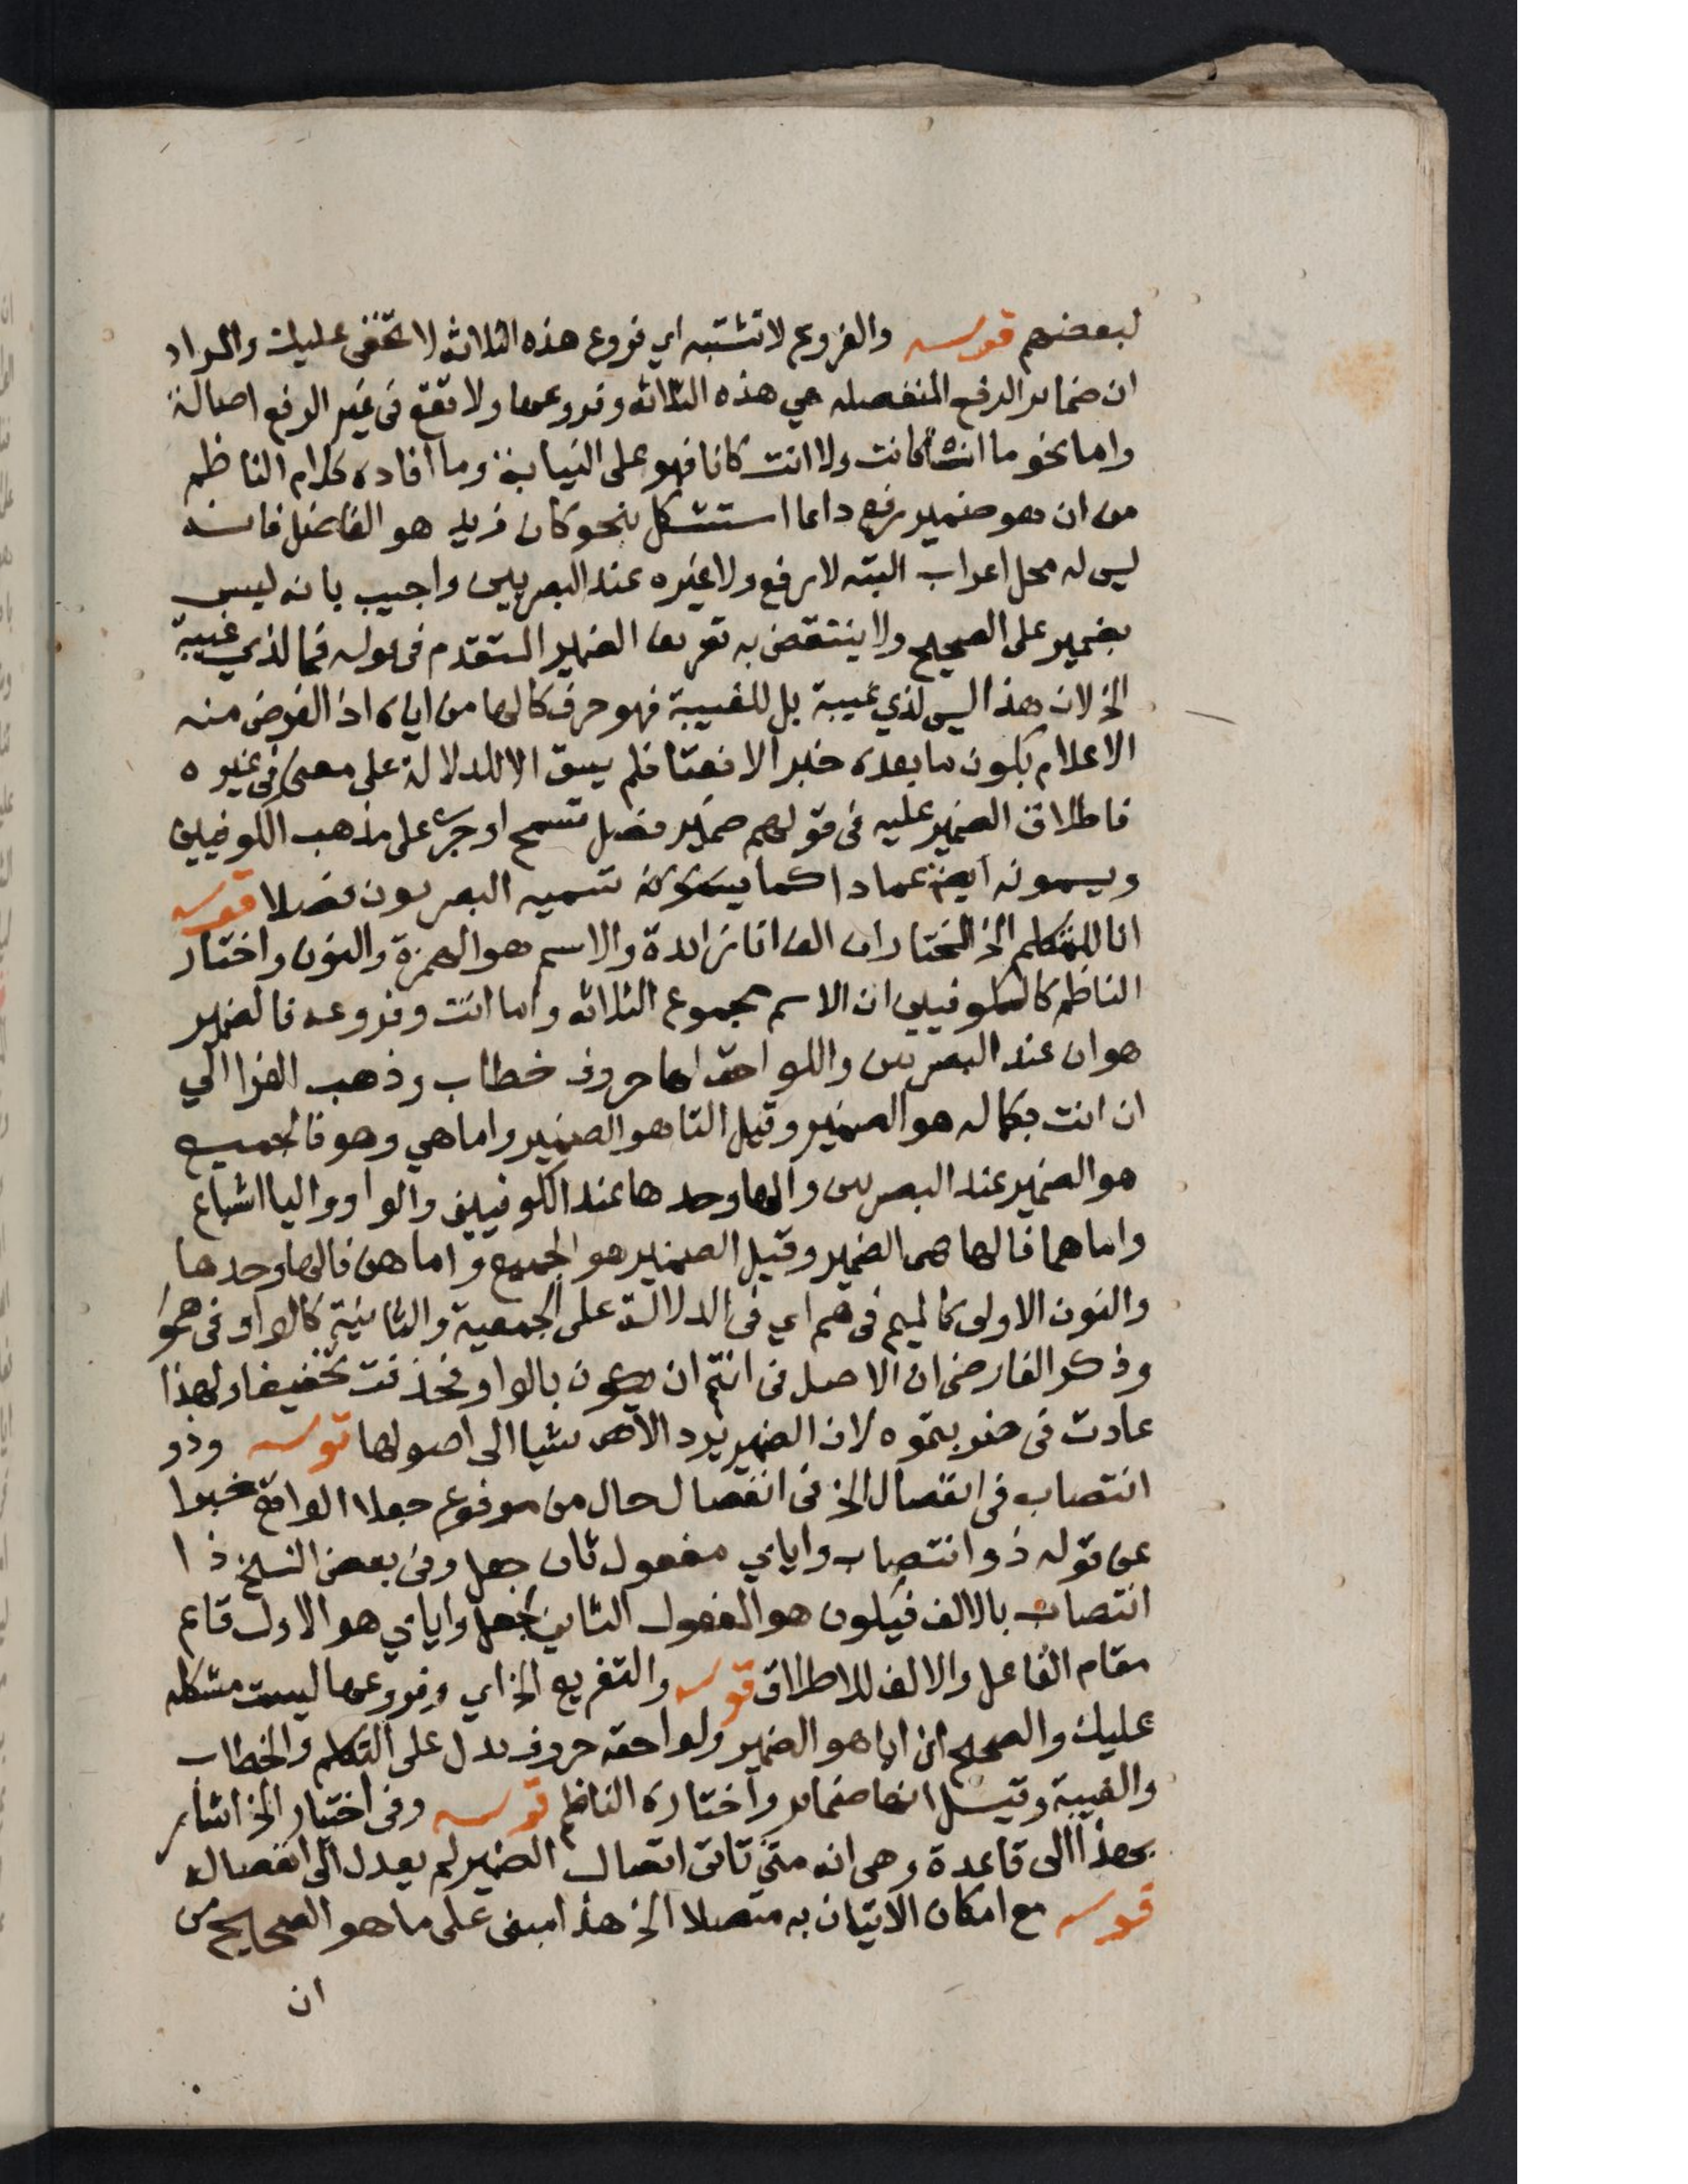 لبعضهم قوله والفروع لا تشتبه اي فروع هذه الثلاثه لا تخفى عليك والمراد
ان ضماىر الرفع المنفصله هي هذه الثلاثه وفروعها ولا تقع في غير الرفع اصالة
واما نحو ما انا كانت ولا انت كانا فهو على النيابة وما افاده كلام الناظم
من ان هو ضمير رفع داىما استشكل بنحو كان زيد هو الفاضل فانه
ليس له محل اعراب البته لا رفع ولا غيره عند البصريين واجيب بانه ليس
بضمير على الصحيح ولا ينتقض به تعريف الضمير المتقدم في قوله فما لذي غيبة
الخ لان هذا ليس لذي غيبة بل للغيبة فهو حرف كالها من اياه اذ الغرض منه
الاعلام بكون ما بعده خبرا لا نعتا فلم يبق الا للدلالة على معنى في غيره
فاطلاق الضمير عليه في قولهم ضمير فصل تسمح او جرى على مذهب الكوفيين
ويسمونه ايضا عمادا كما تسميه البصريون فصلا قوله
انا للمتكلم الخ المختار ان الف انا زاىدة والاسم هو الهمزة والنون واختار
الناظم كالكوفيين ان الاسم مجموع الثلاثه واما انت وفروعه فالضمير
هو ان عند البصريين واللواحق لها حروف خطاب وذهب الفرا الي
ان انت بكماله هو الضمير وقيل التا هو الضمير واما هي وهو فالجميع
هو الضمير عند البصريين والها وحدها عند الكوفيين والواو واليا اشباع
واما هما فالها هى الضمير وقيل الضمير هو الجميع واما هن فالها وحدها
والنون الاولى كالميم في هم اي في الدلالة على الجمعية والثانية كالواو في همو
وذكر الفارضي ان الاصل في انتم ان يكون بالواو فحذفت تخفيفا ولهذا
عادت في ضربتموه لان الضمير يرد الاشيا الى اصولها قوله وذو
انتصاب في انفصال الخ في انفصال حال من مرفوع جعلا الواقع خبرا
عن قوله ذو انتصاب واياي مفعول ثان جعل وفي بعض النسخ ذا
انتصاب بالالف فيكون هو المفعول الثاني لجعل واياي هو الاول قاىم
مقام الفاعل والالف للاطلاق قوله والتفريع الخ اي وفروعها ليست مشكله
عليك والصحيح ان ايا هو الضمير ولواحقه حروف تدل على التكلم والخطاب
والغيبة وقيل انها ضماىر واختاره الناظم قوله وفي اختيار الخ اشار
بهذا الى قاعدة وهي انه متى تاتى اتصال الضمير لم يعدل الى انفصاله
قوله مع امكان الاتيان به متصلا الخ هذا مبنى على ما هو الصحيح من
ان